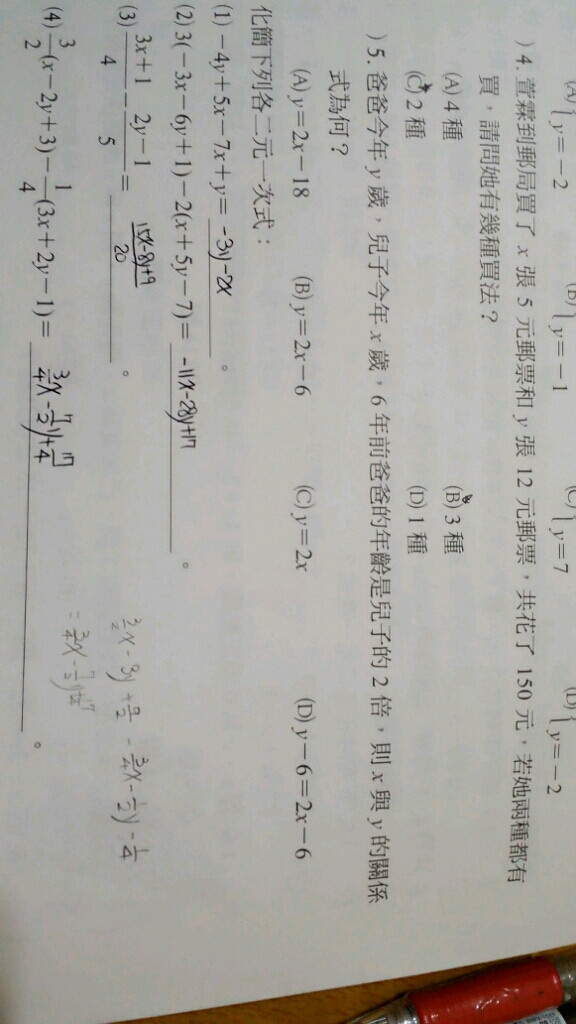 (A){y=-2 (B){y=-1 (C){y=7 (D){y=-2
)4. 萱霖到郵局買了 x 張 5 元郵票和 y 張 12 元郵票，共花了 150 元，若她兩種都有
買，請問她有幾種買法？
(A) 4 種 (B) 3 種
(C) 2 種 (D) 1 種
)5. 爸爸今年 y 歲，兒子今年 x 歲，6 年前爸爸的年齡是兒子的 2 倍，則 x 與 y 的關係
式為何？
(A) y=2x-18 (B) y=2x-6 (C) y=2x (D) y-6=2x-6
化簡下列各二元一次式：
(1) -4y+5x-7x+y= -3y-2x 。
(2) 3(-3x-6y+1)-2(x+5y-7)= -11x-28y+17 。
(3) (3x+1)/4 - (2y-1)/5 = (15x-8y+9)/20 。
(4) 3/2(x-2y+3)-1/4(3x+2y-1)= 3/4x-7/2y+17/4 。
3/2x-3y+9/2-3/4x-1/2y-1/4
=3/4x-7/2y+17/4